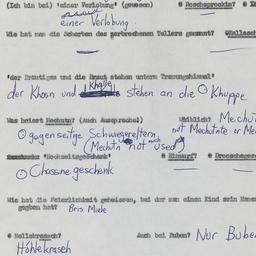 (Ich bin bei) 'einer Verlobung' (gewesen)
einer Verlobung
Wie hat man die Scherben des zerbrochenen Tellers genannt?
'der Bräutigam und die Braut stehen unterm Trauungshimmel'
der Khosn und Khalle stehen an die Khuppe
Was heisst Mechutn? (Auch Aussprache!) Weiblich? Mechu
gegenseitge Schwiegereltern, not Mechutnte or Me
(Mechutn not much used)
'Hochzeitsgeschenk' Einwurf?
Chassne geschenk
Wie hat die Feierlichkeit geheissen, bei der man einem Kind sein
geben hat? Bris Miele
Hollekrasch? Auch bei Buben? Nur Bube
Hohlekrasch